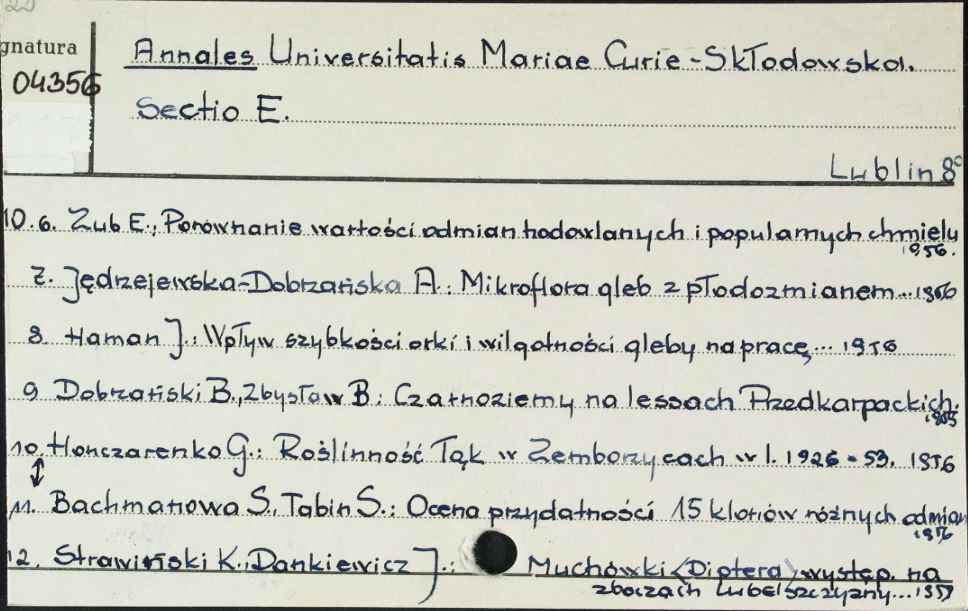 23
gnatura
04356
Annales Universitatis Mariae Curie-Skłodowska.
Sectio E.
Lublin 8°
10.6. Zub E., Porównanie wartości odmian hodowlanych i popularnych chmielu
1956.
7. Jędrzejewska-Dobrzańska A.: Mikroflora gleb z płodozmianem...1956
8. Haman J.: Wpływ szybkości orki i wilgotności gleby na pracę... 1956
9 Dobrzański B., Zbysław B: Czarnoziemy na lessach Przedkarpackich.
10. Honczarenko G.: Roślinność łąk w Zemborzycach w l. 1926-53. 1956
11. Bachmanowa S., Tabin S.: Ocena przydatności 15 klonów różnych odmian
1956
12. Strawiński K., Dankiewicz J.: Muchówki (Diptera) występ. na
zboczach Lubelszczyzny...1957